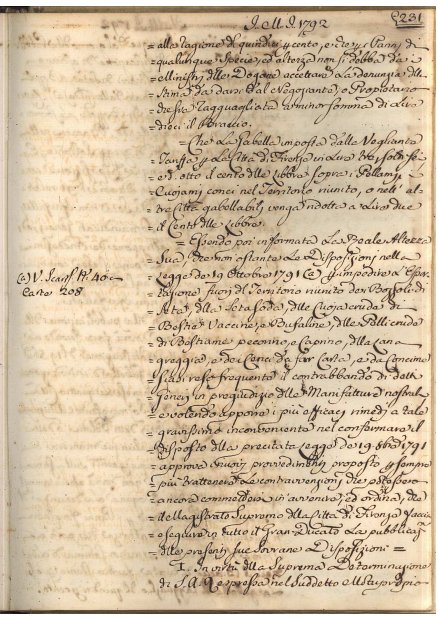 I. M. I. 1792 231
= alla ragione di quindici p cento, e che p i Panni di
= qualunque specie, ed altezza non si debba da i
= Ministri delle Dogane accettare La denunzia, della
= stima da darsi dal Negoziante, o Proprietario
= che sia ragguagliata a minor somma di Lire
= dieci il Braccio.
= Che La Gabella imposta dalla Vegliante
= Tariffa p La Città di Firenze in Lire tre soldi sei
= e d. otto il cento delle Libbre sopra i Pellami, e
= Cuojami conci nel Territorio riunito, o nell' al
= tre Città gabellabili venga ridotta a Lire due
= il Cento delle Libbre.
= Essendo poi informata La Reale Altezza
= Sua, che non ostante Le Disposizioni nella
= Legge de 19 Ottobre 1791 (a) p impedire L'Espor
(a) V. Scanf. N.° 40 a
Carte 208
= tazione fuori del Territorio riunito dei Bozzoli di
= Seta, della Seta soda, delle Cuoja crude di
= Bestie Vaccine, e Bufaline, delle Pelli crude
= di Bestiame pecorino, e Caprino, della Lana
= greggia, e dei Cenci da far Carta, e da Concime
= siasi reso frequente il contrabbando di detti
= generi in pregiudizio delle Manifatture nostrali
= e volendo apporre i più efficaci rimedj a tale
= gravissimo inconveniente nel confermare il
= disposto della precitata Legge de 19. 8bre 1791
= approva nuovi provvedimenti proposti p sempre
= più trattenere Le contravvenzioni che potessero
= ancora commettersi in avvenire, ed ordina, che
= il Magistrato Supremo della Città di Firenze faccia
= eseguire in tutto il Gran Ducato La pubblicaz.e
= delle presenti sue Sovrane Disposizioni =
I. In virtù della Suprema Determinazione
di S. A. R. espressa nel suddetto Motuproprio